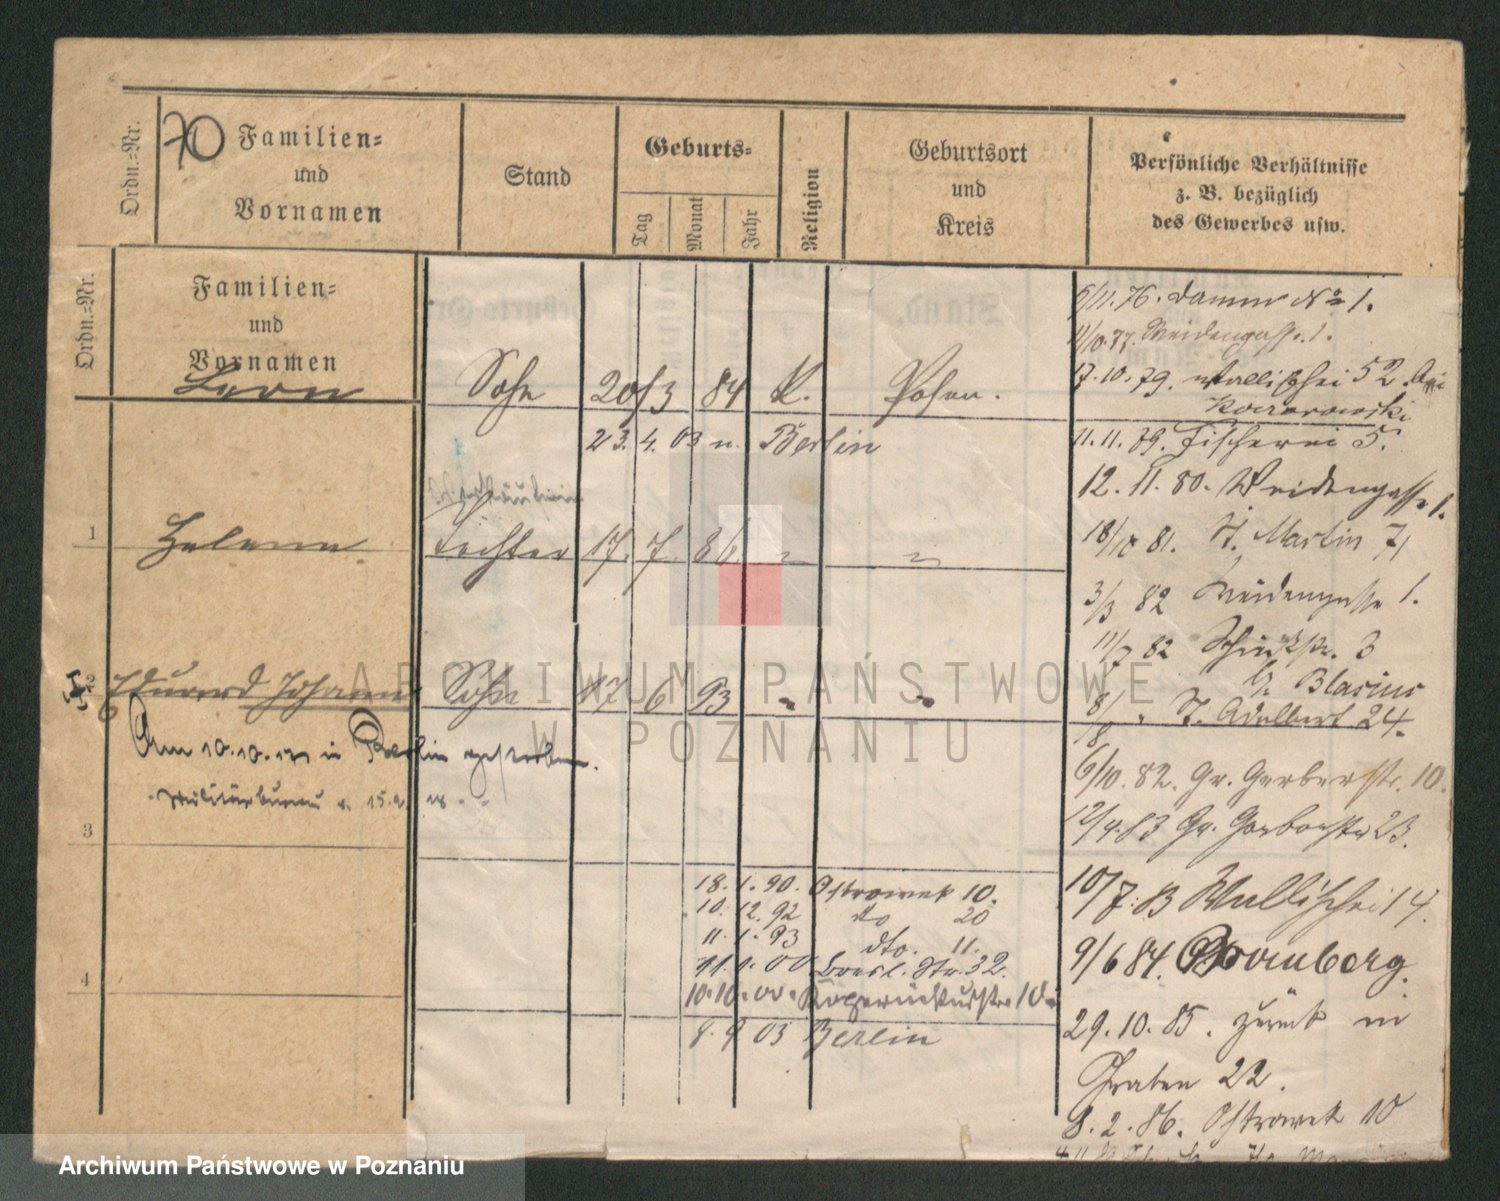 Ordn.=Nr.
70
Familien=
und
Vornamen
Stand
Geburts=
Tag
Monat
Jahr
Religion
Geburtsort
und
Kreis
Persönliche Verhältnisse
z. B. bezüglich
des Gewerbes usw.
Ordn.=Nr.
Familien=
und
Vornamen
Leon Sohn 20/3 84 K. Posen.
23. 4. 03 n. Berlin
1 Helene Tochter 17. 7. 86. " "
2 Eduard Johannes Sohn 17 6 93 " "
Am 10.10.17 in Berlin gestorben.
Militärbureau v. 15.2.18.
3
4
18. 1. 90. Ostrowek 10.
10. 12. 92 do 20
11. 1. 93 dto. 11.
11. 1. 00 Bresl. Str. 32.
10. 10. 00. Kopernikusstr. 10
8. 9 03 Berlin
5/11. 76. Damm No 1.
11/10. 77. Weidengasse 1.
17. 10. 79. Wallischei 52.
11. 11. 79. Fischerei 5.
12. 11. 80. Weidengasse 1.
18/10 81. St. Martin 71
3/3 82 Weidengasse 1.
11/7 82 Schützstr. 3
b/ Blasius
8/8 " St. Adalbert 24.
6/10. 82. Gr. Gerberstr. 10.
12/4. 83 Gr. Gerberstr 23.
10/7. 83 Wallischei 14.
9/6 84. Bromberg.
29. 10. 85. zurück in
Graben 22.
8. 2. 86. Ostrowek 10
ARCHIWUM PAŃSTWOWE
W POZNANIU
Archiwum Państwowe w Poznaniu